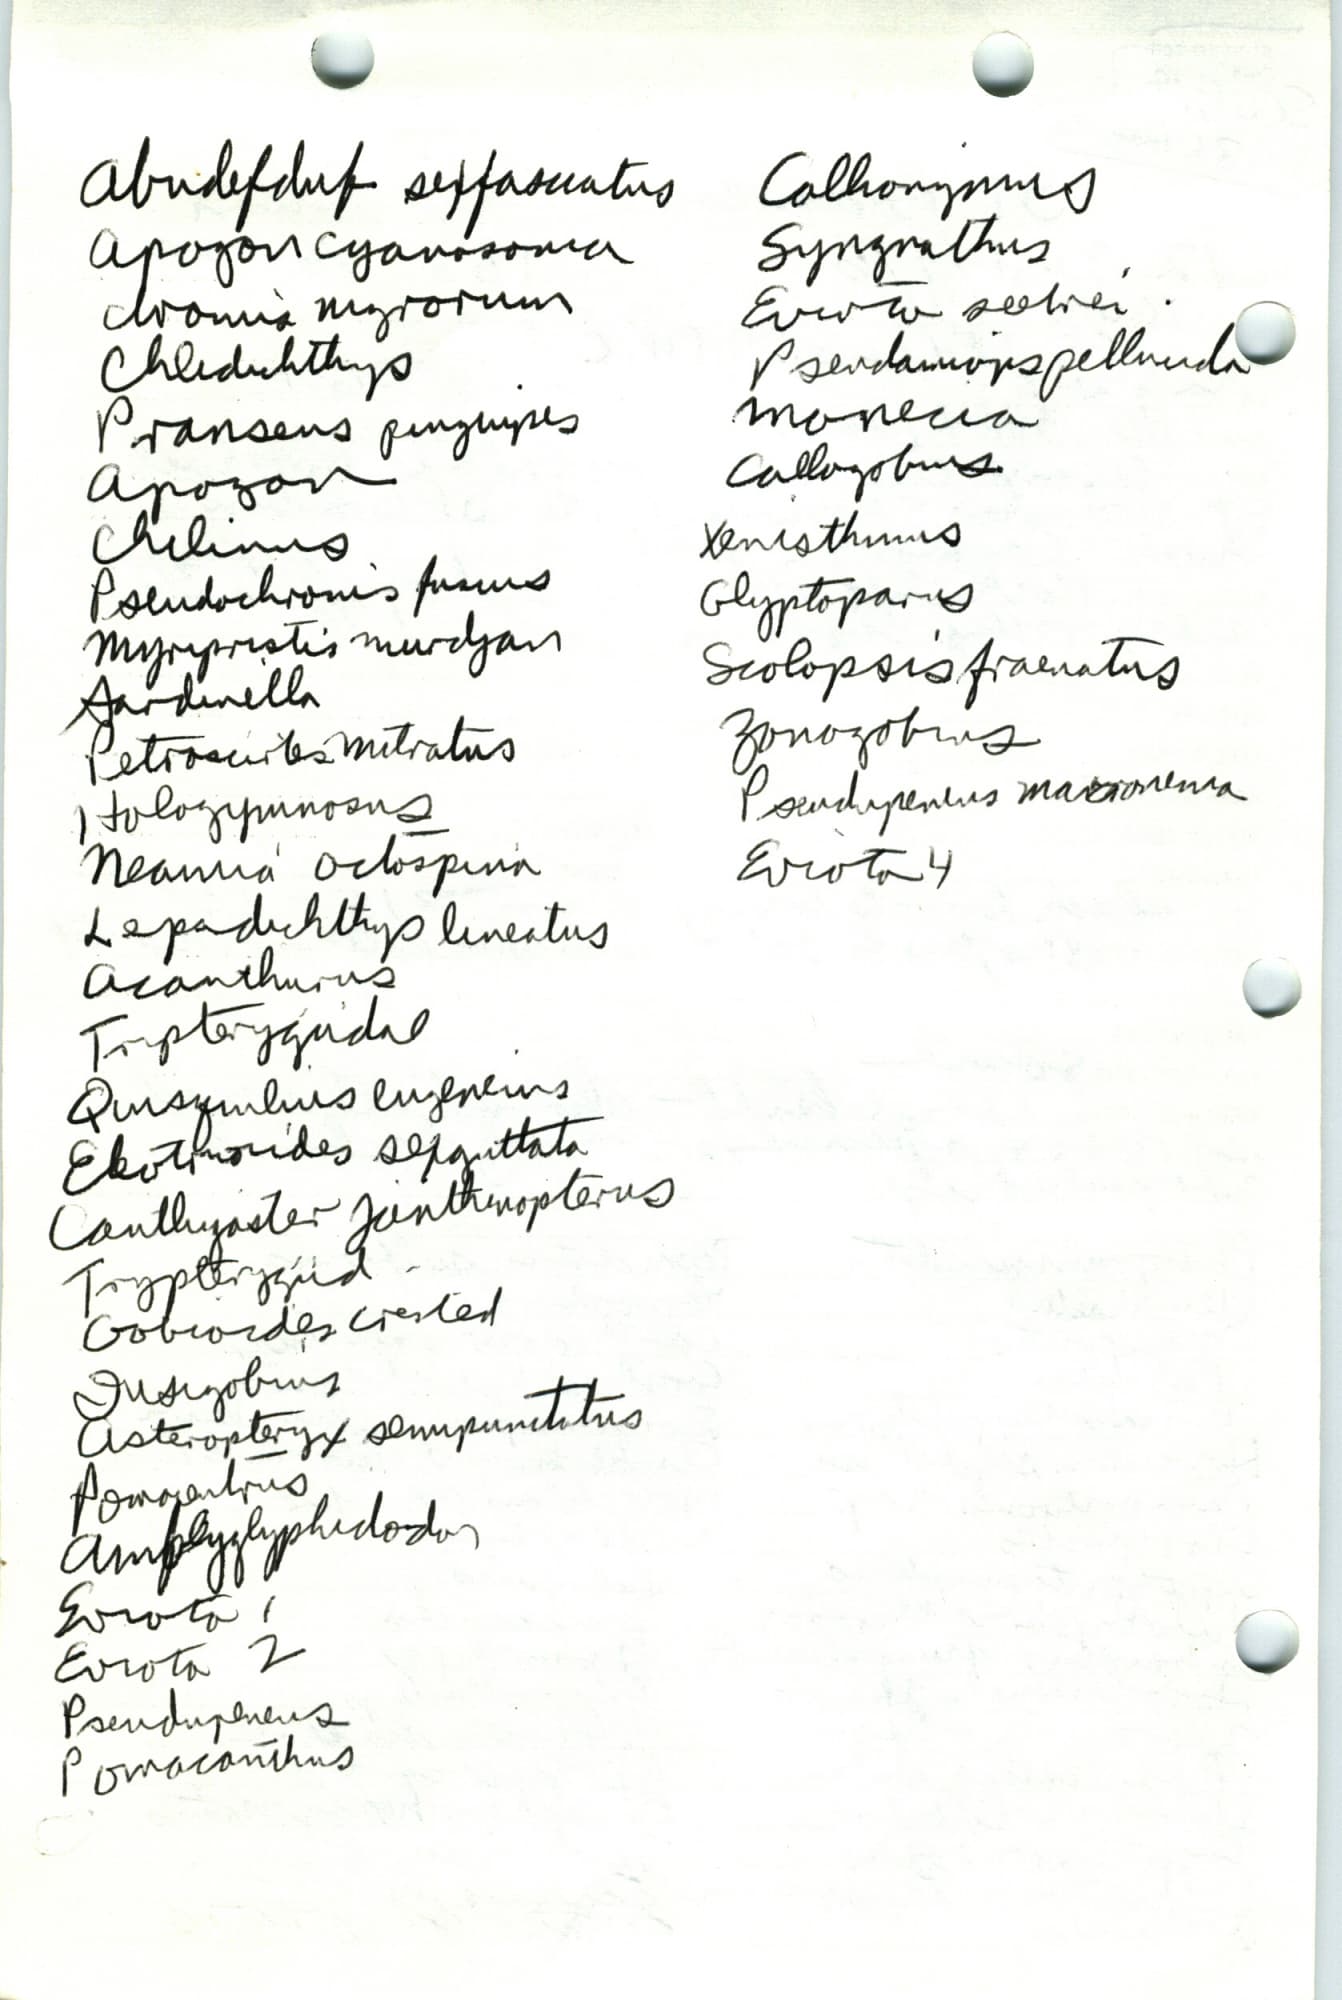 Abudefduf sexfasciatus
Apogon cyanosoma
Chromis
Cheilodichthys
Pranseus pinguipes
Apogon
Chilinus
Pseudochromis fuscus
Myripristis murdjan
Sardinella
Petroscirtes mitratus
Hologymnosus
Neamia octospina
Lepadichthys lineatus
Acanthurus
Tripterygiidae
Quisquilius eugenius
Eleotrioides sexguttata
Canthigaster janthinopterus
Trypterygiid -
Gobioides crested
Fusigobius
Asteropteryx semipunctatus
Pomacentrus
Amblyglyphidodon
Eviota 1
Eviota 2
Pseudupeneus
Pomacanthus
Callionymus
Syngnathus
Eviota seebrei.
Pseudamiops pellucida
Callogobius
Xenisthmus
Glyptoparus
Scolopsis fraenatus
Zonogobius
Pseudupeneus macronema
Eviota 4